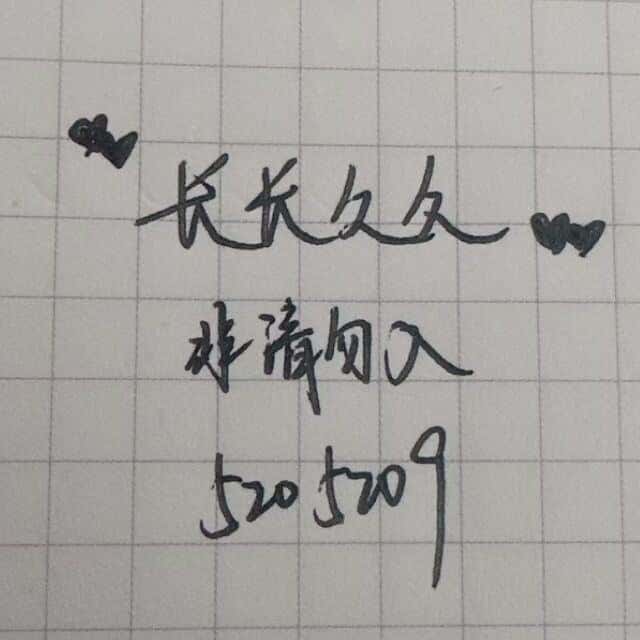 长长久久
非请勿入
5205209